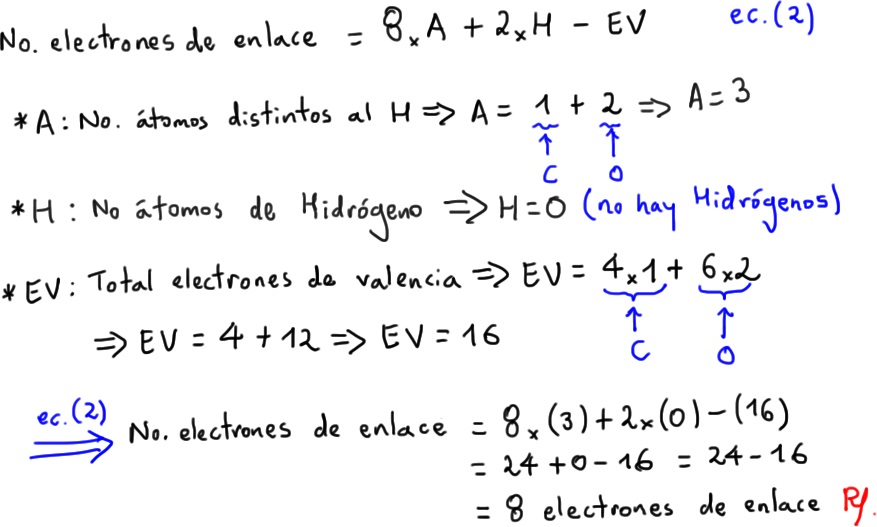 No. electrones de enlace = 8 x A + 2 x H - EV ec.(2)
* A : No. átomos distintos al H => A = 1 + 2 => A = 3
C O
* H : No átomos de Hidrógeno => H = 0 (no hay Hidrógenos)
* EV : Total electrones de valencia => EV = 4 x 1 + 6 x 2
=> EV = 4 + 12 => EV = 16
C O
ec.(2)
=> No. electrones de enlace = 8 x (3) + 2 x (0) - (16)
= 24 + 0 - 16 = 24 - 16
= 8 electrones de enlace R/.